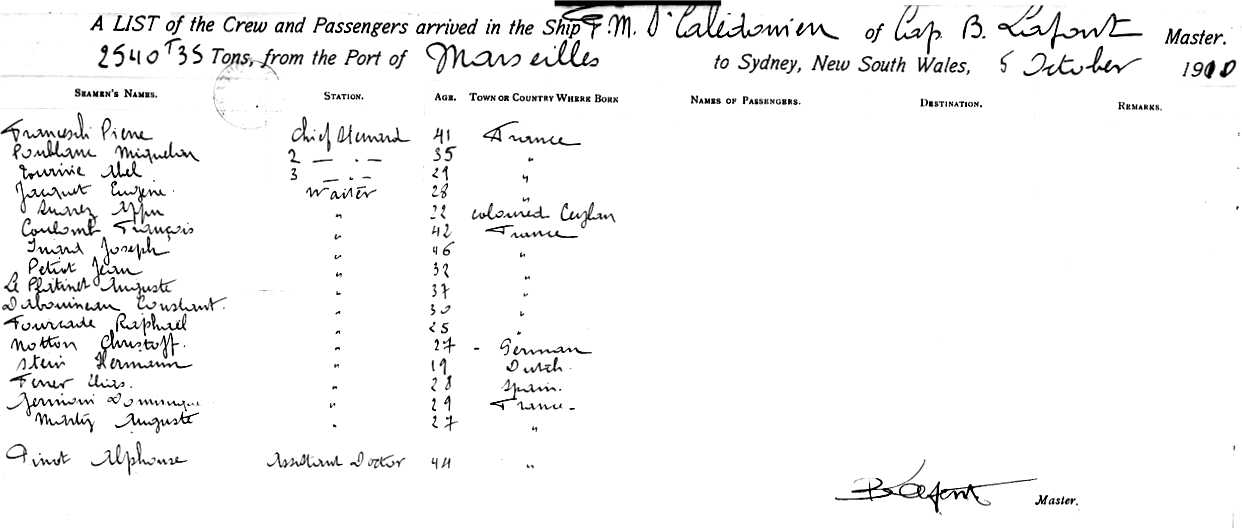 A LIST of the Crew and Passengers arrived in the Ship F.M. "Calédonien of Cap B. Lafont Master.
2540 T 35 Tons, from the Port of Marseilles to Sydney, New South Wales, 5 October 1900
SEAMEN'S NAMES. STATION. AGE. TOWN OR COUNTRY WHERE BORN NAMES OF PASSENGERS. DESTINATION. REMARKS.
Franceschi Pierre Chief Steward 41 France
Miquelin 2 — . — 35 "
Abel 3 — . — 29 "
Jacquet Eugène. Waiter 28 "
" 22 coloured Ceylan
Coulomb François " 42 France
Imard Joseph " 46 "
Petiot Jean " 32 "
Auguste " 37 "
Dabouineau Constant. " 30 "
Fourcade Raphaël " 25 "
Notton Christoff. " 27 - German
Stein Hermann " 19 Dutch.
Ferrer Elias. " 28 Spain.
Dominique " 29 France -
Auguste " 27 "
Pinot Alphonse Assistant Doctor 44 "
B Lafont Master.